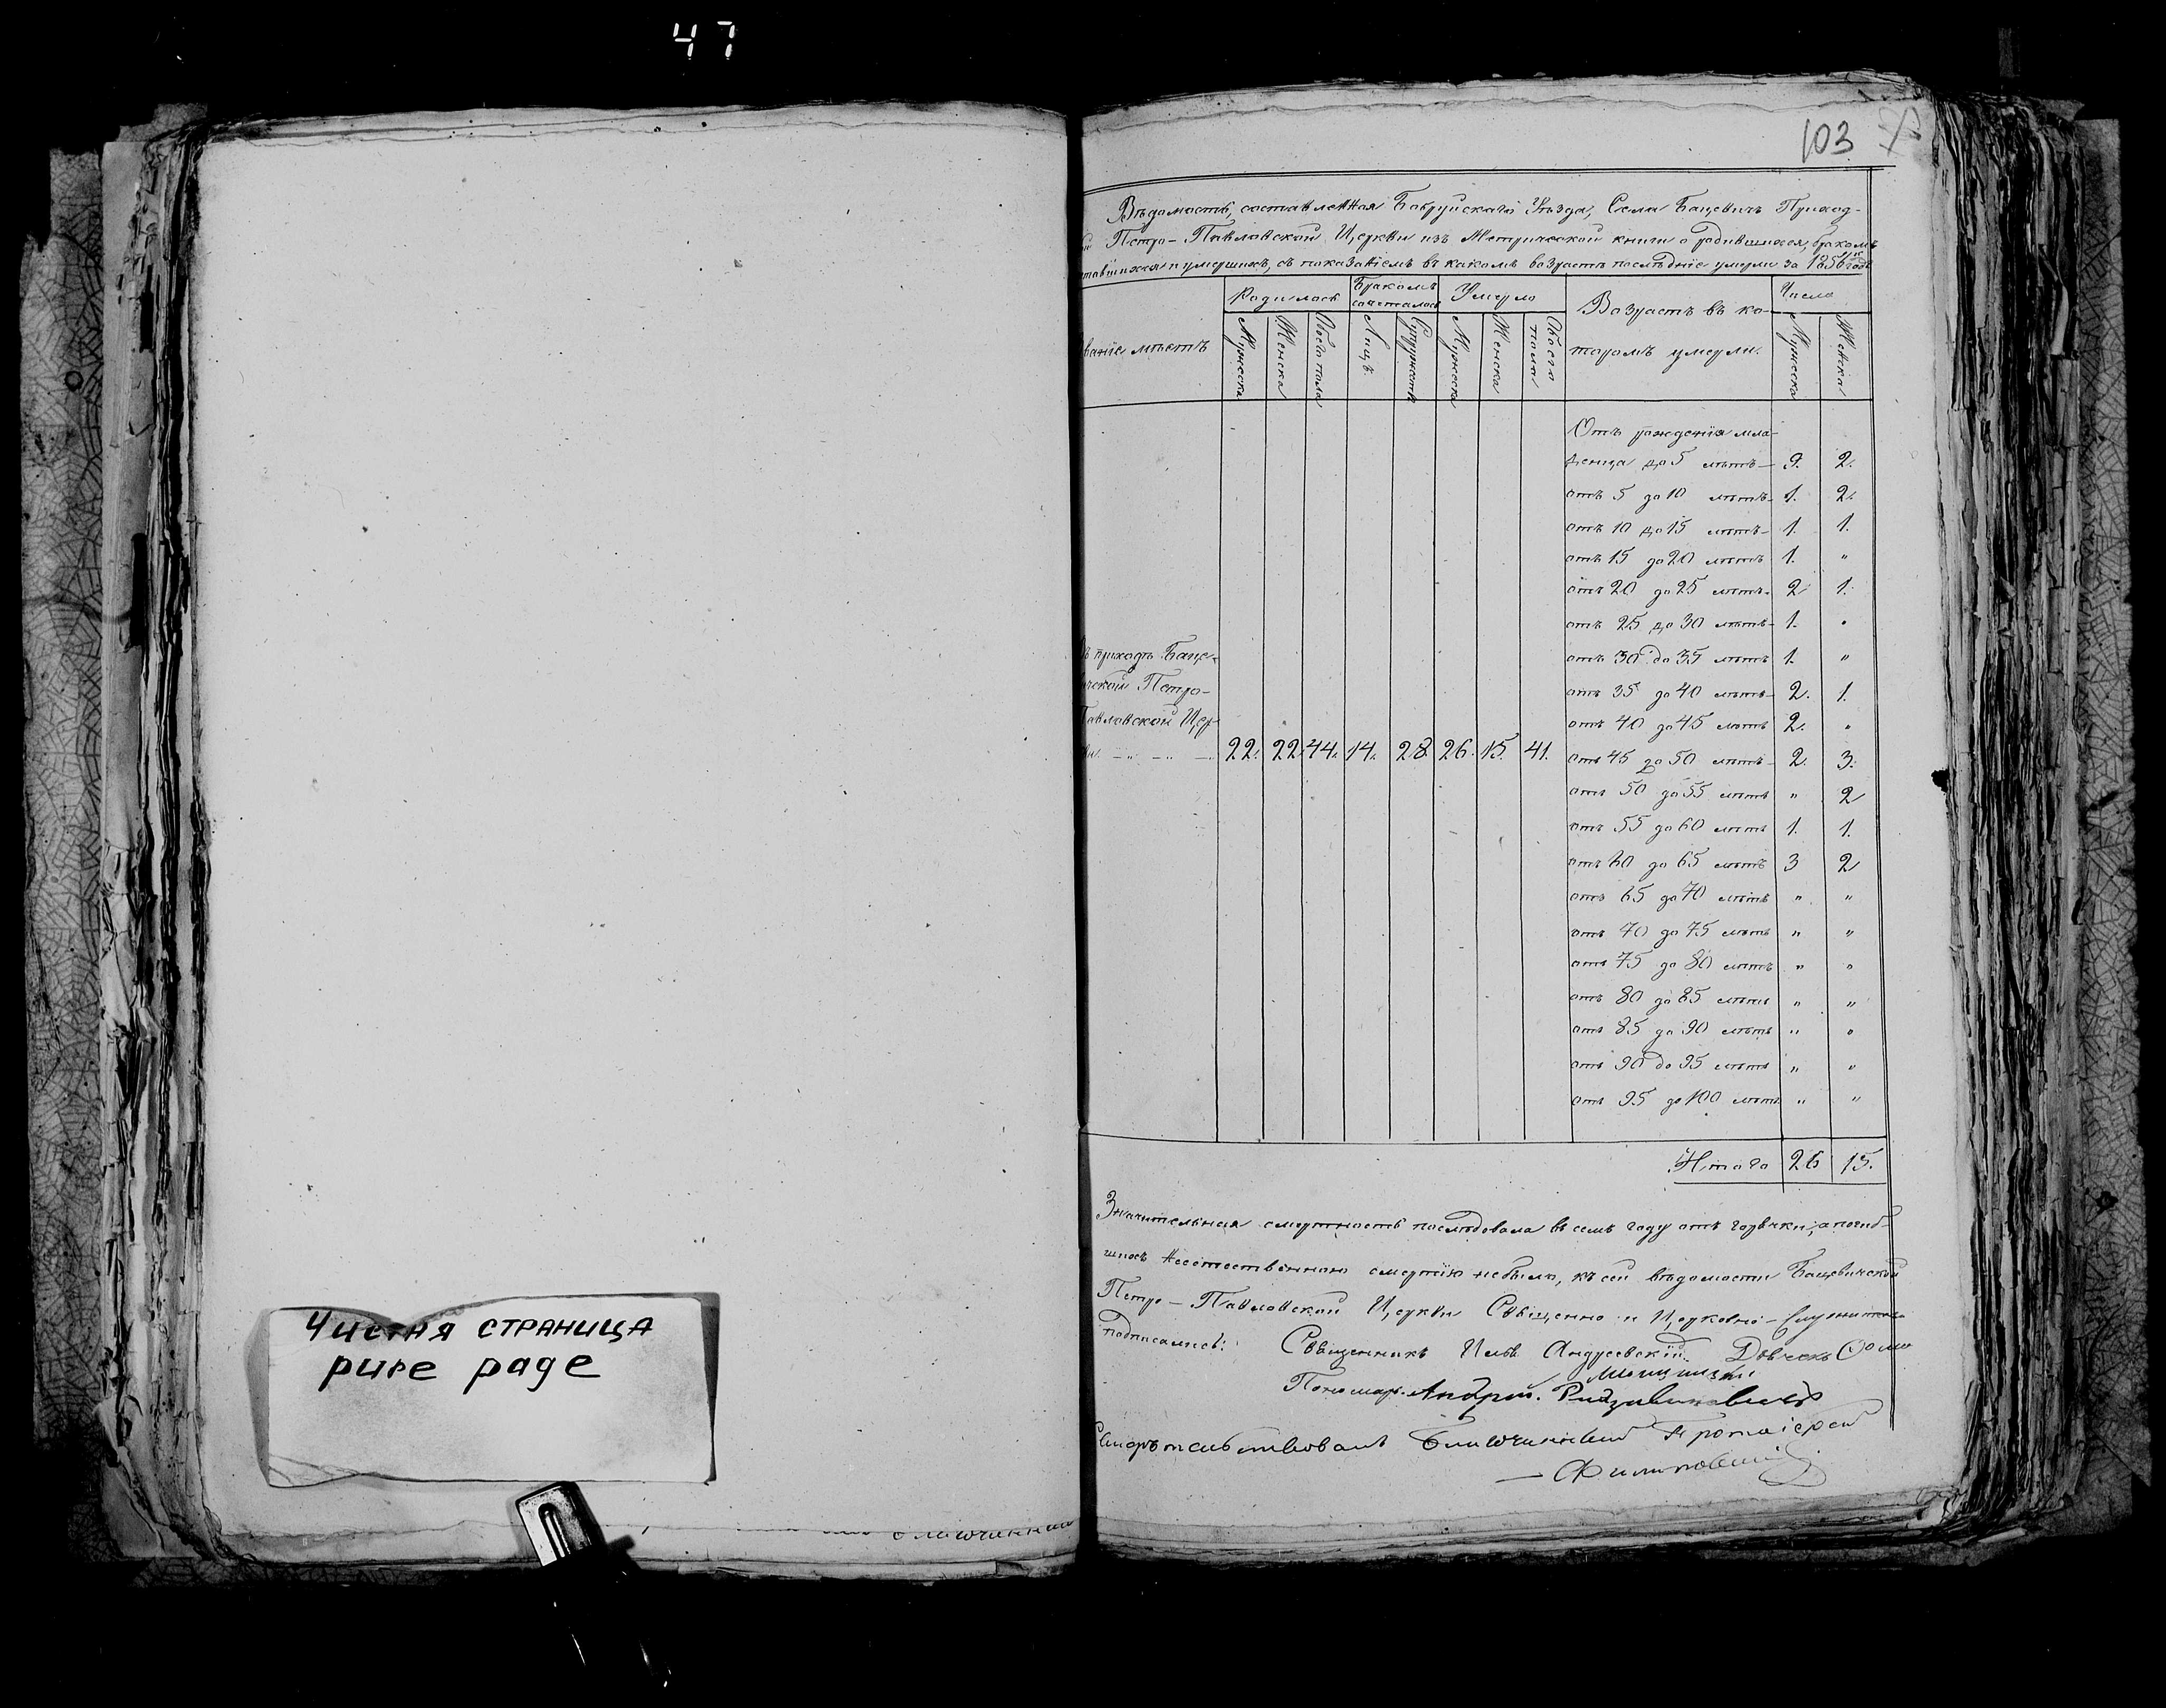 47
103
Вѣдомость, составленная Бобруйскаго Уѣзда, Села Бацевичъ Приход-
Петро-Павловской Церкви изъ Метрической книги о родившихся, бракомъ
тавшихся и умершихъ, съ показаніемъ въ какомъ возрастѣ послѣдніе умерли за 1856 годъ
ваніе мѣстъ
Родилось
Бракомъ
сочеталось
Умерло
Возрастъ въ ко-
торомъ умерли.
Число
Мужеска
Женска
Обоего пола
Лицъ
Супружествъ
Мужеска
Женска
Обоего
пола
Мужеска
Женска
Отъ рожденія мла-
денца до 5 лѣтъ- 9. 2.
отъ 5 до 10 лѣтъ- 1. 2.
отъ 10 до 15 лѣтъ- 1. 1.
отъ 15 до 20 лѣтъ 1. "
отъ 20 до 25 лѣтъ- 2 1.
отъ 25 до 30 лѣтъ- 1. "
отъ 30 до 35 лѣтъ 1. "
отъ 35 до 40 лѣтъ- 2. 1.
отъ 40 до 45 лѣтъ 2. "
отъ 45 до 50 лѣтъ- 2. 3.
отъ 50 до 55 лѣтъ " 2
отъ 55 до 60 лѣтъ 1. 1.
отъ 60 до 65 лѣтъ 3 2
отъ 65 до 70 лѣтъ " "
отъ 70 до 75 лѣтъ " "
отъ 75 до 80 лѣтъ " "
отъ 80 до 85 лѣтъ " "
отъ 85 до 90 лѣтъ " "
отъ 90 до 95 лѣтъ " "
отъ 95 до 100 лѣтъ " "
приходѣ Баце-
ической Петро-
Павловской Цер-
22. 22. 44. 14. 28. 26. 15. 41.
Итого 26 15.
Значительная смертность послѣдовала въ семъ году отъ горячки, а погиб-
шихъ неестественною смертію небыло, къ сей вѣдомости Бацевичской
Петро-Павловской Церкви Священно и Церковно-Служители
подписались:
Священникъ Илья Андрусевскій Дьячекъ
Пономарь Андрей
Свидѣтельствовалъ Благочинный Протоіерей
Филиповичъ
Чистая СТРАНИЦА
pure page
Благочинный